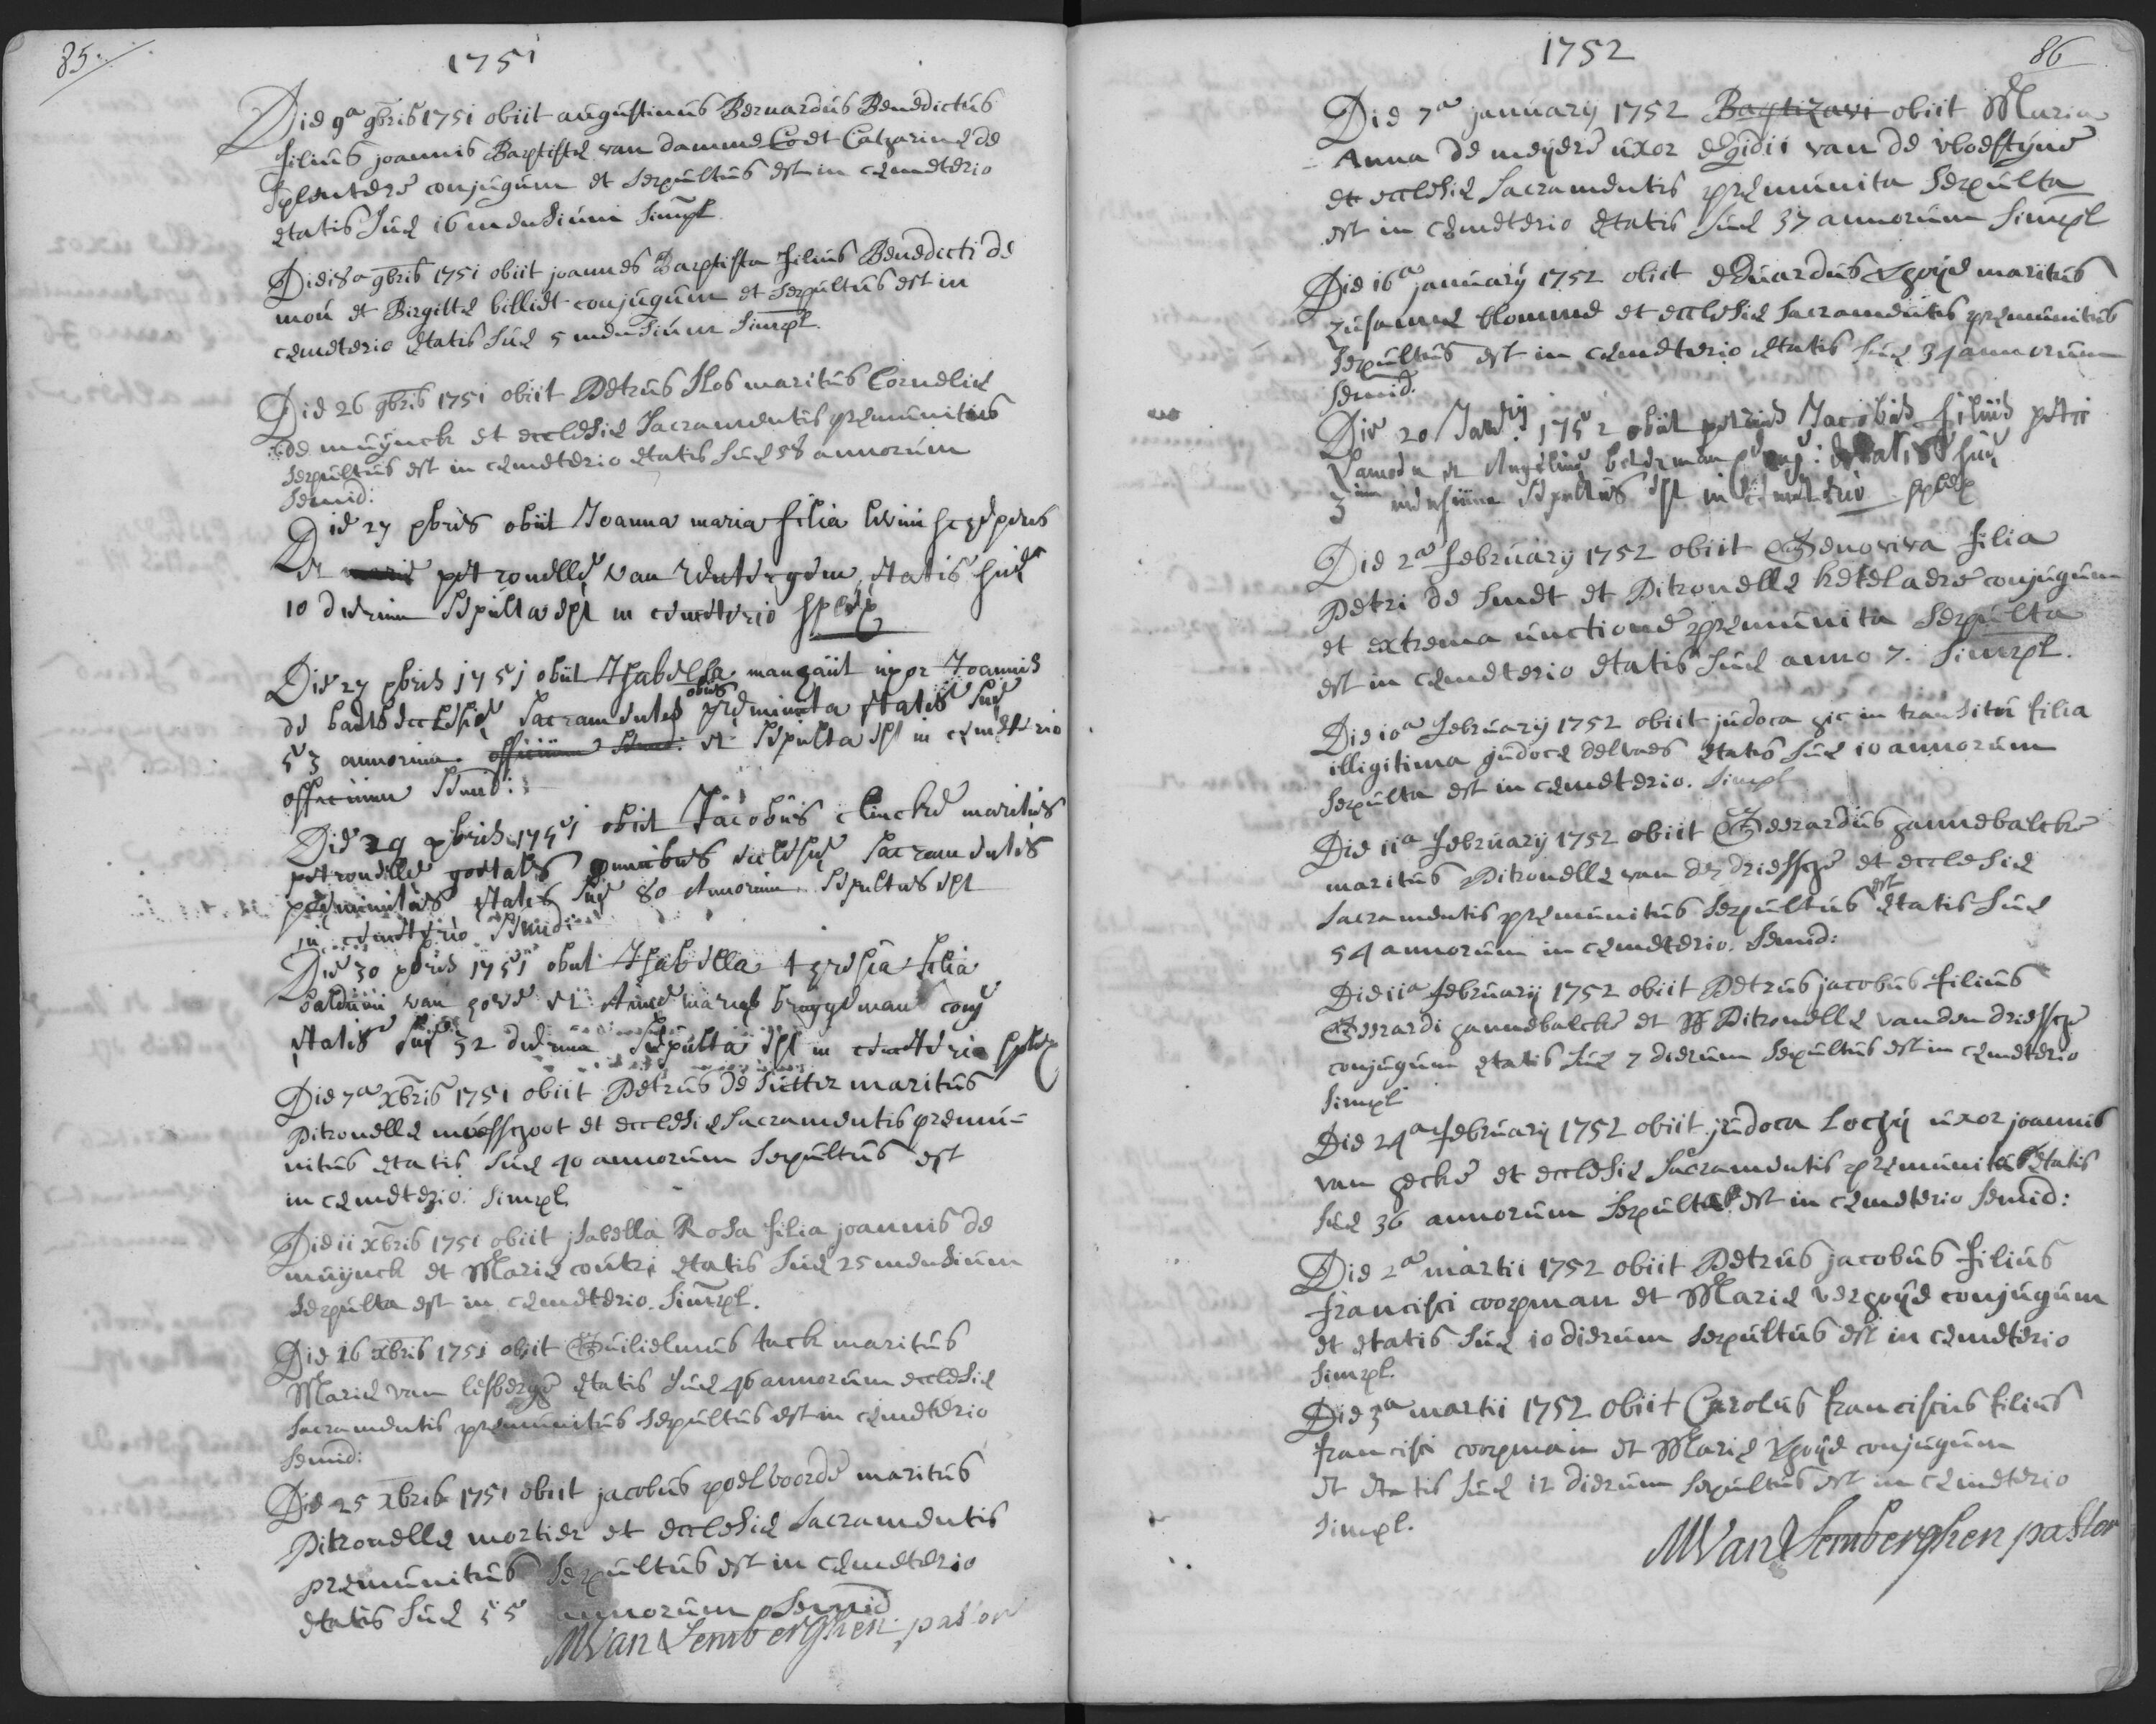 85.
1751
Die 9a 9bris 1751 obiit augustinus Bernardus Benedictus
filius joannis Baptistæ van damme et Catharinæ de
splentere conjugum et sepultus est in cæmeterio
ætatis suæ 16 mensium simpl.
Die 18a 9bris 1751 obiit joannes Baptista filius Benedicti de
mou et Birgittæ billiet conjugum et sepultus est in
cæmeterio ætatis suæ 5 mensium simpl.
Die 26 9bris 1751 obiit Petrus Slos maritus Corneliæ
de muijnck et ecclesiæ sacramentis præmunitus
sepultus est in cæmeterio ætatis suæ 58 annorum
semid:
Die 27 9bris obiit Joanna maria filia livini
et petronelle van renterghem, ætatis suæ
10 dierum sepulta est in cemeterio
Die 27 9bris 1751 obiit Isabella manhaut uxor Joannis
de baets ecclesiæ sacramentes obus premunita ætatis suæ
53 annorum officium semid: et sepulta est in cemeterio
officium semid:
Die 29 9bris 1751 obiit Jacobus clincke maritus
petronelle goetals omnibus ecclesiæ sacramentis
premunitus ætatis suæ 80 annorum sepultus est
in cemeterio semid:
Die 30 9bris 1751 obiit Isabella theresia filia
balduini van hove et Anne mariæ bruggeman conj
ætatis suæ 32 dierum sepulta est in cemeterio
Die 7a xbris 1751 obiit Petrus de sutter maritus
Pitronellæ moesschoot et ecclesiæ sacramentis præmu-
nitus ætatis suæ 40 annorum sepultus est
in cæmeterio. simpl.
Die 11 xbris 1751 obiit jsabella Rosa filia joannis de
muijnck et Mariæ coutri ætatis suæ 25 mensium
sepulta est in cæmeterio. simpl.
Die 16 xbris 1751 obiit Guilielmus tack maritus
Mariæ van lesberge ætatis suæ 46 annorum ecclesiæ
sacramentis præmunitus sepultus est in cæmeterio
semid:
Die 25 xbris 1751 obiit jacobus poelvoorde maritus
Pitronellæ mortier et ecclesiæ sacramentis
præmunitus sepultus est in cæmeterio
ætatis suæ 55 annorum semid
MVan Lemberghen pastor
1752
86
Die 7a januarij 1752 Baptizavi obiit Maria
Anna de meijere uxor Egidii van de vloestyne
et ecclesiæ sacramentis præmunita sepulta
est in cæmeterio ætatis suæ 37 annorum simpl
Die 16a januarij 1752 obiit eduardus xhoije maritus
zusannæ blomme et ecclesiæ sacramentis præmunitus
sepultus est in cæmeterio ætatis suæ 34 annorum
semid.
Die 20 Januarij 1752 obiit petrus Jacobus filius petri
et Angeline beldeman conj: ætatis suæ
3 mensium sepultus est in cemeterio
Die 2a februarij 1752 obiit Genoviva filia
Petri de smet et Pitronellæ ketelaere conjugum
et extrema unctione præmunita sepulta
est in cæmeterio ætatis suæ anno 7. simpl.
Die 10a februarij 1752 obiit judoca hic in transitu filia
illigitima judocæ delvaes ætatis suæ 10 annorum
sepulta est in cæmeterio. simpl
Die 11a februarij 1752 obiit Gerardus hannebalcke
maritus Pitronellæ van der driessche et ecclesiæ
sacramentis præmunitus sepultus est ætatis suæ
54 annorum in cæmeterio. semid:
Die 11a februarij 1752 obiit Petrus jacobus filius
Gerardi hannebalcke et Pitronellæ van den driessche
conjugum ætatis suæ 7 dierum sepultus est in cæmeterio
simpl
Die 24a februarij 1752 obiit judoca Lochy uxor joannis
van hecke et ecclesiæ sacramentis præmunita ætatis
suæ 36 annorum sepulta est in cæmeterio semid:
Die 2a martii 1752 obiit Petrus jacobus filius
francisci coopman et Mariæ verhoije conjugum
et ætatis suæ 10 dierum sepultus est in cæmeterio
simpl.
Die 3a martii 1752 obiit Carolus franciscus filius
francisci coopman et Mariæ xhoije conjugum
et ætatis suæ 12 dierum sepultus est in cæmeterio
simpl.
MVan Lemberghen pastor